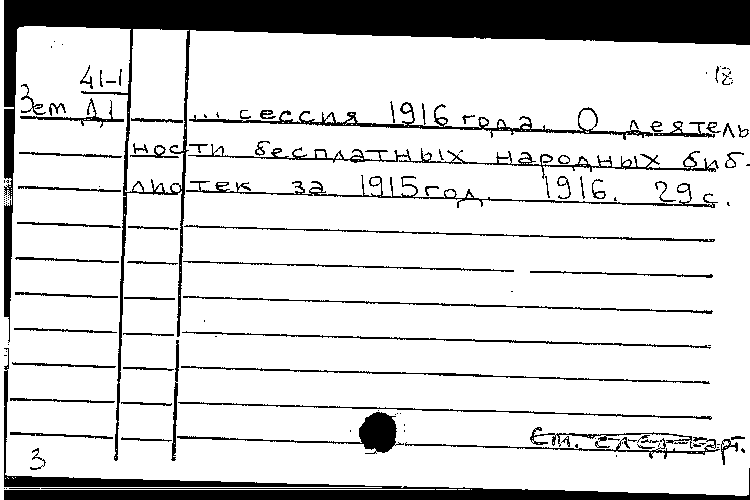 18
41-1
Зем Д1 ... сессия 1916 года. О деятель
ности бесплатных народных биб-
лиотек за 1915 год. 1916. 29 с.
См. след. карт.
3